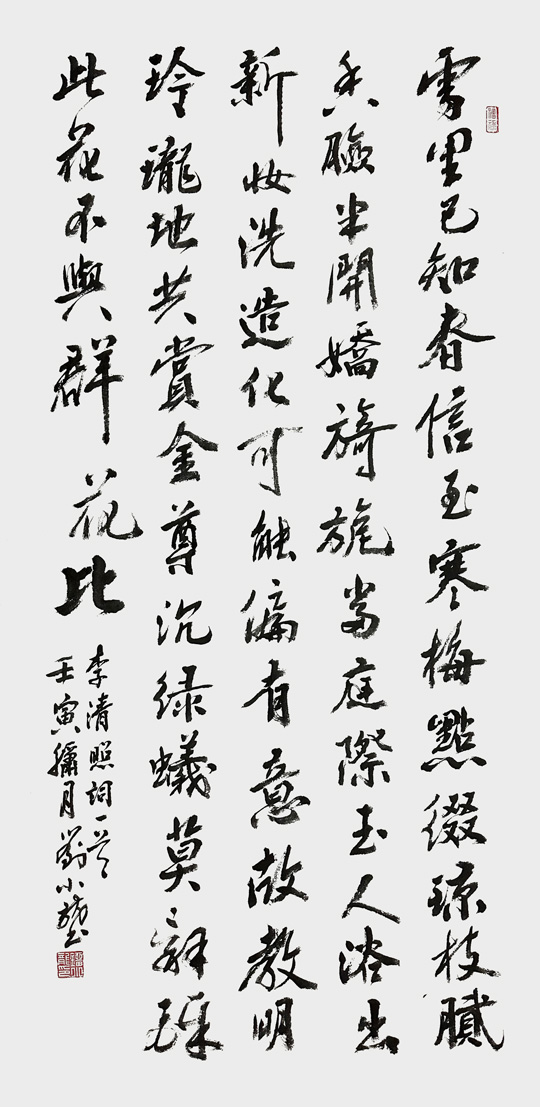 雪里已知春信至寒梅點綴琼枝膩
香臉半開嬌旖旎當庭際玉人浴出
新妝洗造化可能偏有意故教明
玲瓏地共賞金尊沉绿蟻莫辭醉
此花不與群花比
李清照詞一首
壬寅臘月劉小